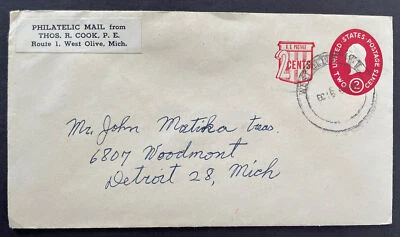 PHILATELIC MAIL from
THOS. R. COOK, P. E.
Route 1, West Olive, Mich.
U.S. POSTAGE
2
CENTS
UNITED STATES POSTAGE
2
TWO CENTS
Mr. John Matika treas.
6807 Woodmont
Detroit 28, Mich